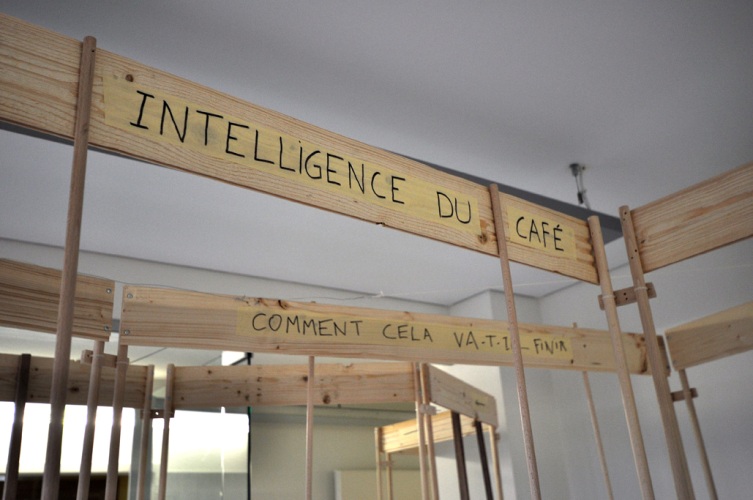 INTELLiGENCE DU CAFÉ
COMMENT CELA VÀ-T-IL FINIR